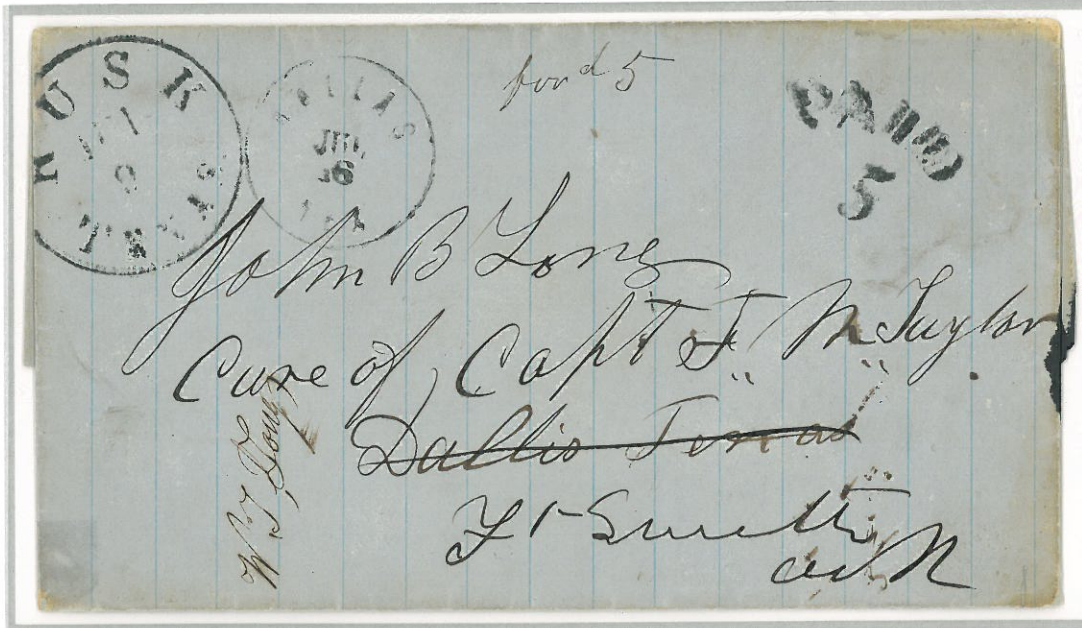 RUSK
JUL
9
TEXAS
DALLAS
JUL
16
TEX
forwd 5
PAID
5
John B Long
Care of Capt F. M. Taylor
Dallis Texas
Ft Smith
ark
W. T. Long